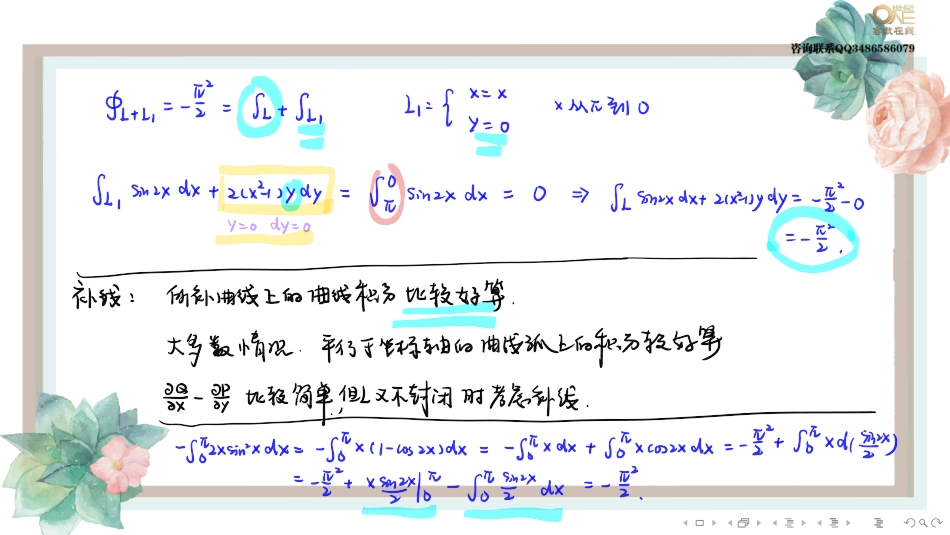 ONE
高数在线
咨询联系QQ3486586079
∮L+L₁ = -π²/2 = ∫L + ∫L₁    L₁ = { x=x  y=0    x从π到0
∫L₁ sin2x dx + 2(x²-1)ydy = ∫π^0 sin2x dx = 0 ⇒ ∫L sin2x dx + 2(x²-1)y dy = -π²/2 - 0
y=0 dy=0
= -π²/2.
补线: 所补曲线上的曲线积分比较好算.
大多数情况. 平行于坐标轴的曲线弧上的积分较好算
∂Q/∂x - ∂P/∂y 比较简单,但L又不封闭时考虑补线.
-∫₀^π 2xsin²xdx = -∫₀^π x(1-cos2x)dx = -∫₀^π xdx + ∫₀^π xcos2xdx = -π²/2 + ∫₀^π xd(sin2x/2)
= -π²/2 + x sin2x/2 |₀^π - ∫₀^π sin2x/2 dx = -π²/2.